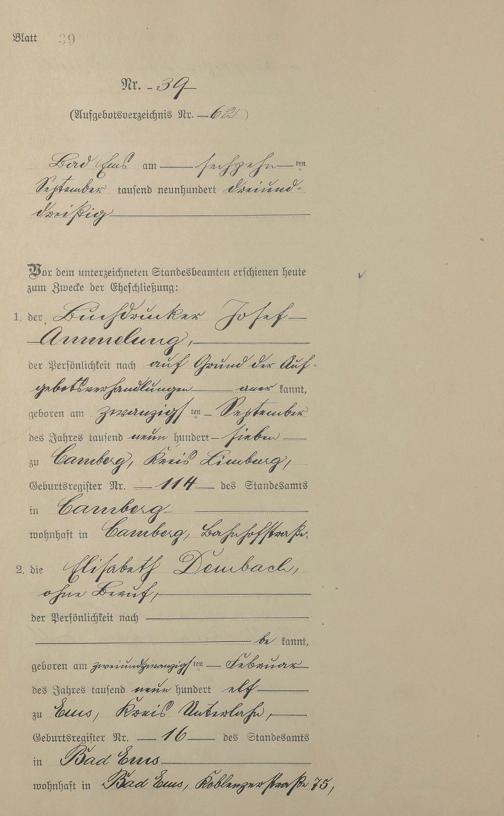 Blatt 39
Nr. 39
(Aufgebotsverzeichnis Nr. 62)
Bad Ems am sechzehnten
September tausend neunhundert dreiund-
dreißig
Vor dem unterzeichneten Standesbeamten erschienen heute
zum Zwecke der Eheschließung:
1. der Buchdrucker Josef
Ammelung,
der Persönlichkeit nach auf Grund der Auf-
gebotsverhandlungen anerkannt,
geboren am zwanzigsten September
des Jahres tausend neun hundert sieben
zu Camberg, Kreis Limburg,
Geburtsregister Nr. 114 des Standesamts
in Camberg
wohnhaft in Camberg, Bahnhofstraße.
2. die Elisabeth Dembach,
ohne Beruf,
der Persönlichkeit nach
be kannt,
geboren am zweiundzwanzigsten Februar
des Jahres tausend neun hundert elf
zu Ems, Kreis Unterlahn,
Geburtsregister Nr. 16 des Standesamts
in Bad Ems
wohnhaft in Bad Ems, Koblenzerstraße 75,